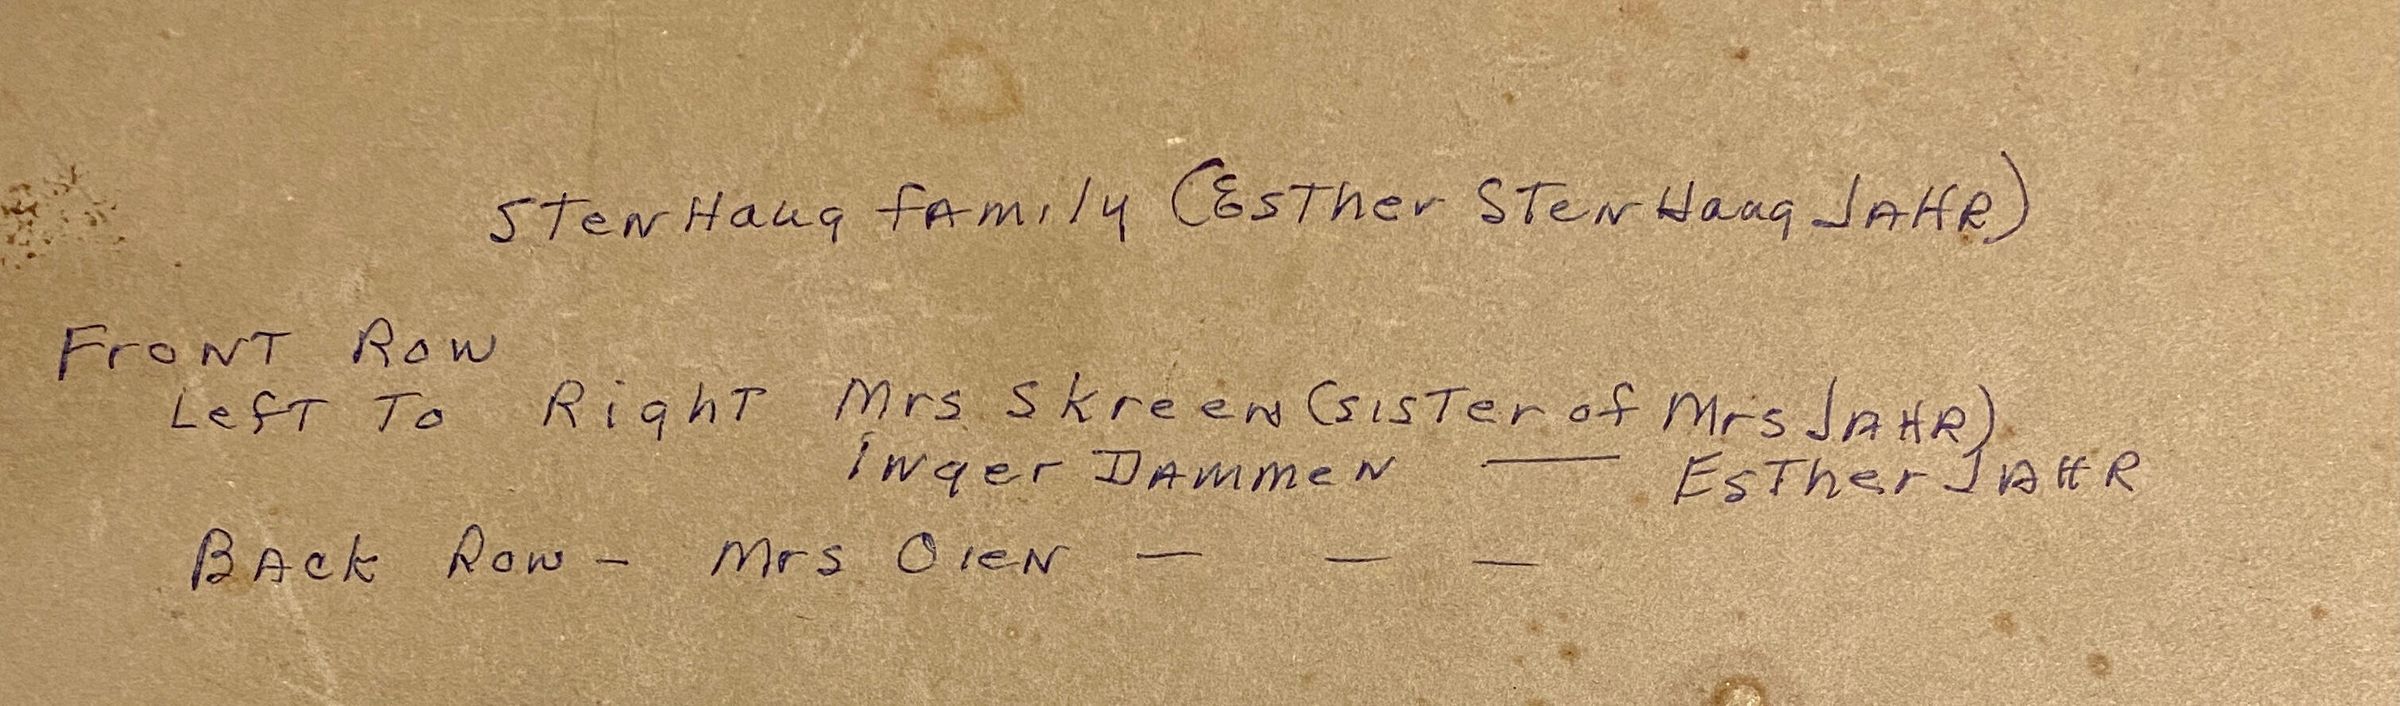 STenHaug fAmily (EsTher STenHaug JAHR)
FronT Row
LefT To Right Mrs Skreen (sisTer of Mrs JAHR)
Inger DAmmen — EsTher JAHR
BAck Row - Mrs Oien — — —